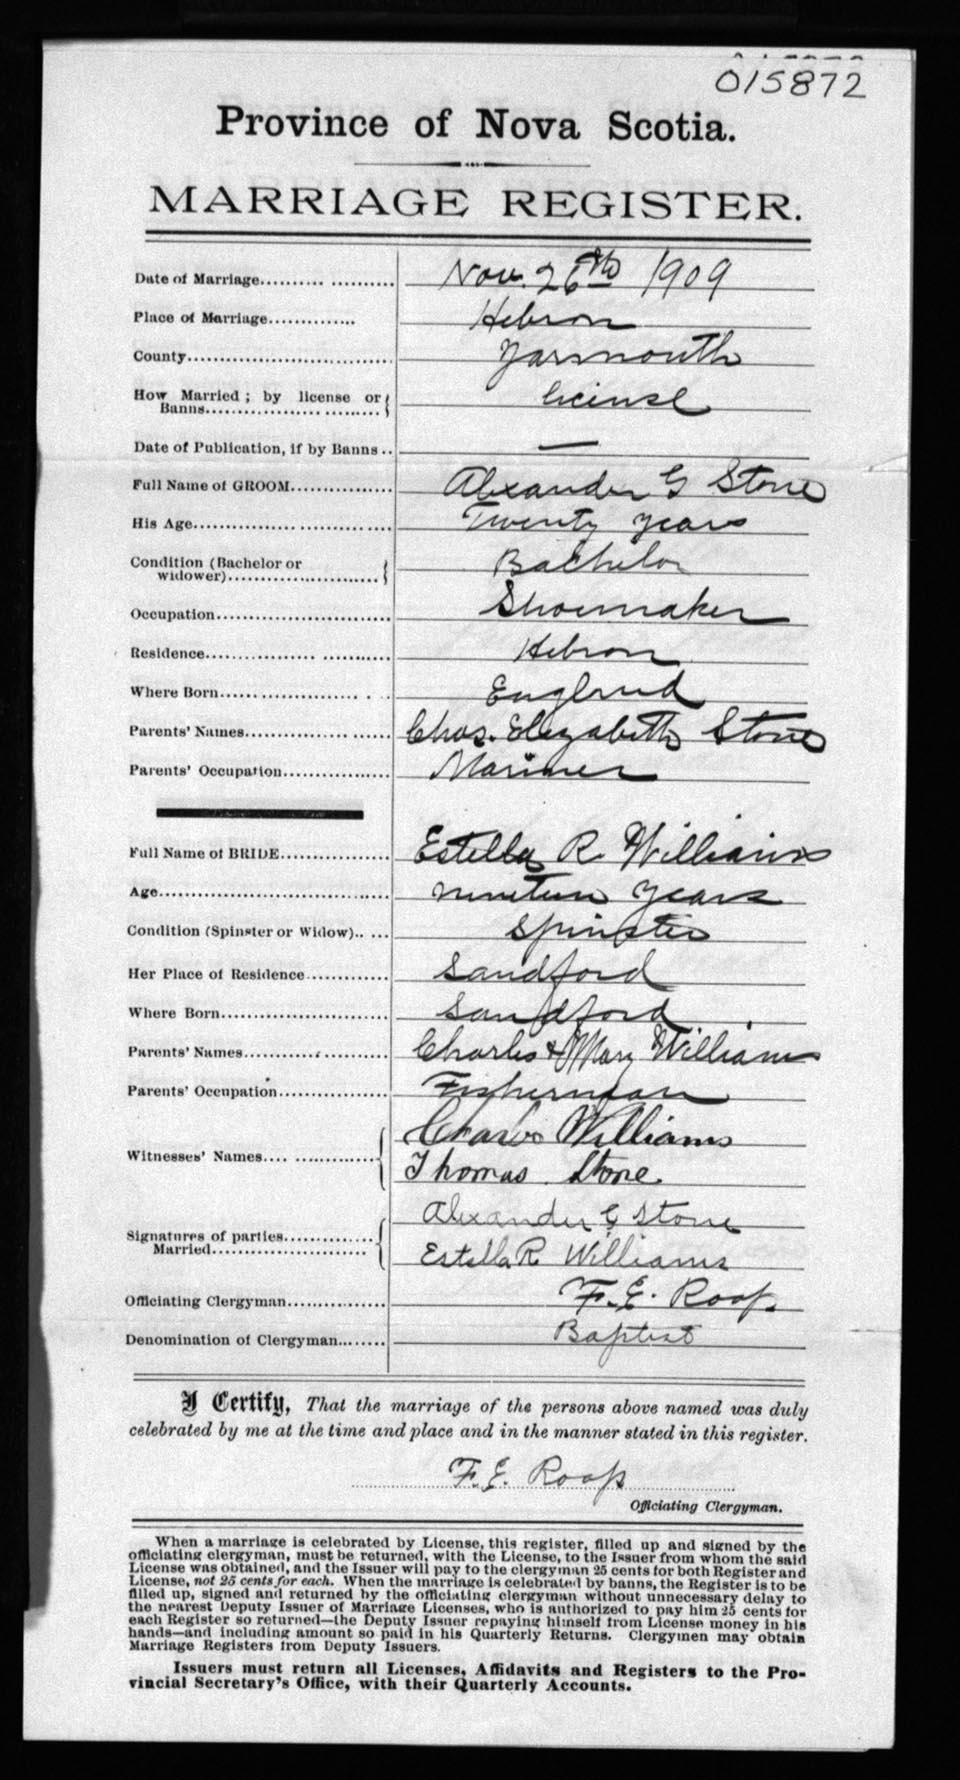 015872
Province of Nova Scotia.
MARRIAGE REGISTER.
Date of Marriage.......... ........... Nov. 26th 1909
Place of Marriage.............. Hebron
County................................ Yarmouth
How Married ; by license or
Banns................. ......... license
Date of Publication, if by Banns .. —
Full Name of GROOM................ Alexander G Stone
His Age................. .......... .... Twenty years
Condition (Bachelor or
widower)......................... Bachelor
Occupation........................... Shoemaker
Residence................. ........... Hebron
Where Born.................. . . England
Parents' Names................ ...... Chas. Elizabeth Stone
Parents' Occupation................. Mariner
Full Name of BRIDE................. Estella R. Williams
Age..................................... nineteen years
Condition (Spinster or Widow).. ... Spinster
Her Place of Residence............. Sandford
Where Born........................... Sandford
Parents' Names....................... Charles & Mary Williams
Parents' Occupation................. Fisherman
Witnesses' Names.... ............. Charles Williams
Thomas Stone
Signatures of parties............... Alexander G Stone
Married........................ Estella R Williams
Officiating Clergyman............... F. E. Roop
Denomination of Clergyman......... Baptist
I Certify, That the marriage of the persons above named was duly
celebrated by me at the time and place and in the manner stated in this register.
F. E. Roop
Officiating Clergyman.
When a marriage is celebrated by License, this register, filled up and signed by the
officiating clergyman, must be returned, with the License, to the Issuer from whom the said
License was obtained, and the Issuer will pay to the clergyman 25 cents for both Register and
License, not 25 cents for each. When the marriage is celebrated by banns, the Register is to be
filled up, signed and returned by the officiating clergyman without unnecessary delay to
the nearest Deputy Issuer of Marriage Licenses, who is authorized to pay him 25 cents for
each Register so returned—the Deputy Issuer repaying himself from License money in his
hands—and including amount so paid in his Quarterly Returns. Clergymen may obtain
Marriage Registers from Deputy Issuers.
Issuers must return all Licenses, Affidavits and Registers to the Pro-
vincial Secretary's Office, with their Quarterly Accounts.